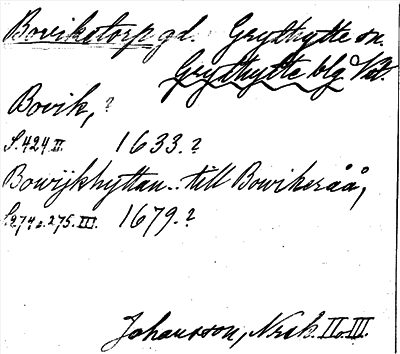 Bovikstorp gd. Grythytte sn.
Grythytte blg. Vstm.
Bovik, ?
S. 424. II. 1633. ?
Bowijkhyttan.. till Bowikeråå,
S. 274 o. 275. III. 1679. ?
Johansson, Nbsk. II o. III.